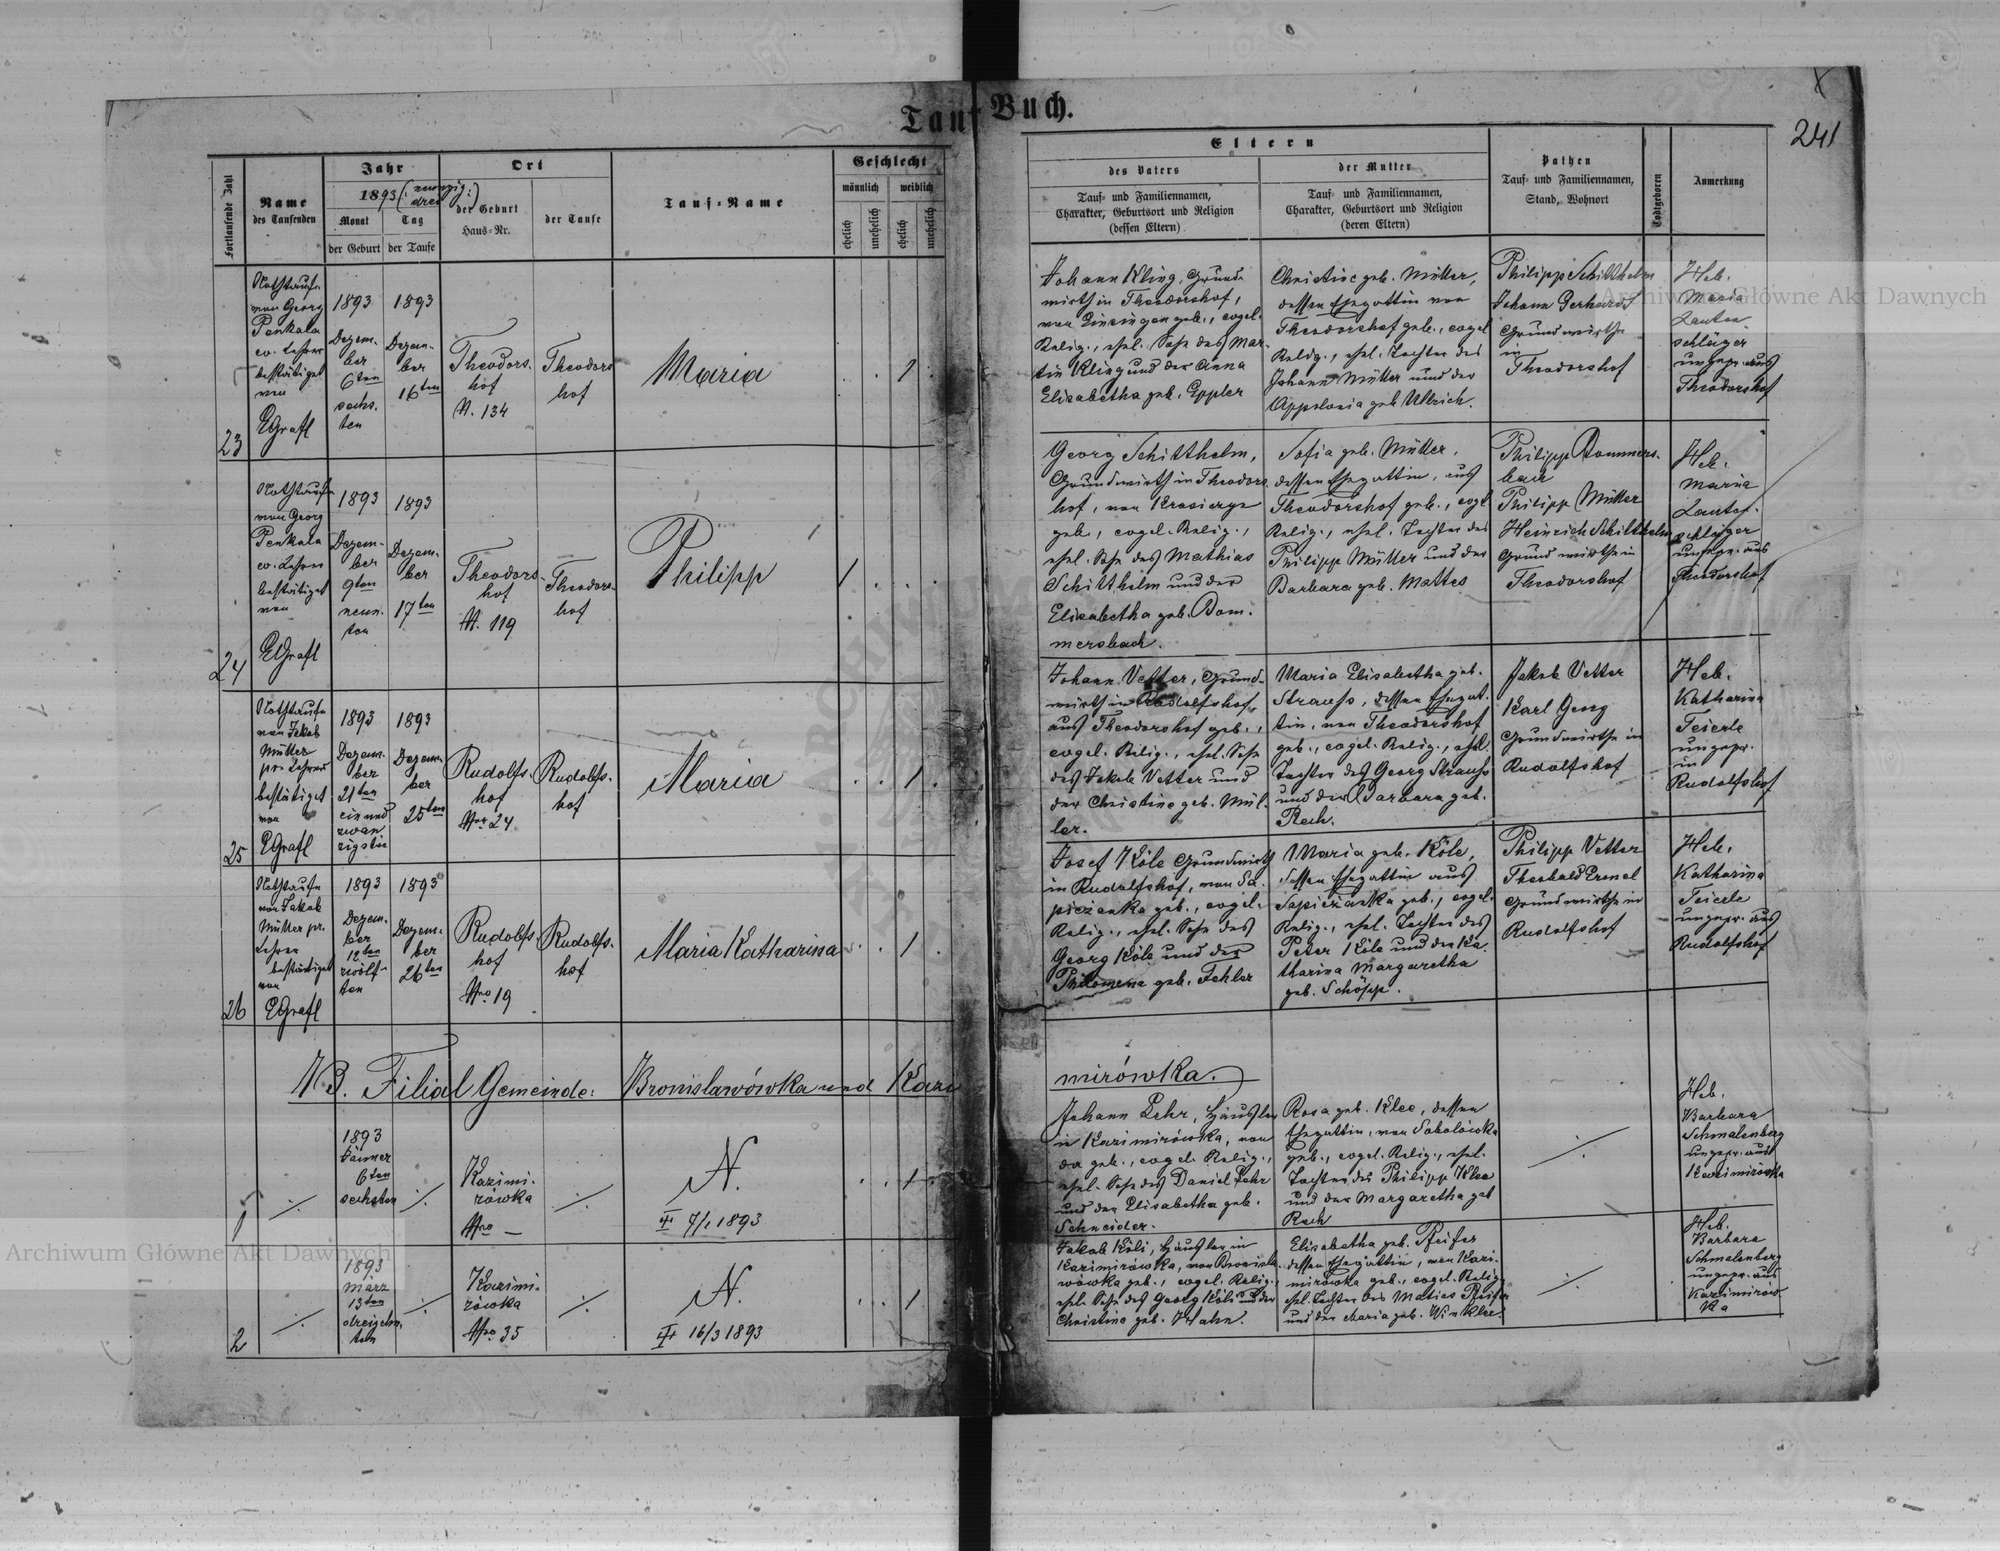 Tauf Buch.
241
Fortlaufende Zahl
Name
des Taufenden
Jahr
1893 (: neunzig:)
drei
Monat
Tag
der Geburt
der Taufe
Ort
der Geburt
Haus-Nr.
der Taufe
Tauf-Name
Geschlecht
männlich
weiblich
ehelich
unehelich
ehelich
unehelich
Eltern
des Vaters
Tauf- und Familiennamen,
Charakter, Geburtsort und Religion
(dessen Eltern)
der Mutter
Tauf- und Familiennamen,
Charakter, Geburtsort und Religion
(deren Eltern)
Pathen
Tauf- und Familiennamen,
Stand, Wohnort
Todtgeboren
Anmerkung
23
Nothtaufe
von Georg
Penkala
ev. Lehrer
bestätiget
von
EGrafl
1893
Dezem-
ber
6ten
sechs-
ten
1893
Dezem-
ber
16ten
Theodors-
hof
N. 134
Theodors
hof
Maria
1
Johann Kling, Grund-
wirth in Theodorshof,
von Einsingen geb., evgel.
Relig., ehel. Sohn des Mar-
tin Kling und der Anna
Elisabetha geb. Eppler
Christine geb. Müller,
dessen Ehegattin von
Theodorshof geb., evgel
Relig., ehel. Tochter des
Johann Müller und der
Appolonia geb Ullrich.
Philipp Schitthelm
Johann Gerhardt
Grundwirthe
in
Theodorshof
Heb.
Maria
Lauten-
schläger
ungepr. aus
Theodorshof
24
Nothtaufe
von Georg
Penkala
ev. Lehrer
bestätiget
von
EGrafl
1893
Dezem-
ber
9ten
neun-
ten
1893
Dezem-
ber
17ten
Theodors-
hof
N. 119
Theodors-
hof
Philipp
1
Georg Schitthelm,
Grundwirth in Theodors
hof, von
geb., evgel. Relig.,
ehel. Sohn des Mathias
Schitthelm und der
Elisabetha geb. Dom-
mersbach.
Sofia geb. Müller,
dessen Ehegattin, aus
Theodorshof geb., evgl
Relig., ehel. Tochter des
Philipp Müller und der
Barbara geb. Mattes
Philipp Dommers-
bach
Philipp Müller
Heinrich Schitthelm
Grundwirthe in
Theodorshof
Heb.
Maria
Lauten-
schläger
ungepr. aus
Theodorshof
25
Nothtaufe
von Jakob
Müller
pr. Lehrer
bestätiget
von
EGrafl
1893
Dezem-
ber
21ten
ein und
zwan
zigsten
1893
Dezem-
ber
25ten
Rudolfs-
hof
Nro 24
Rudolfs-
hof
Maria
1
Johann Vetter, Grund-
wirth in Rudolfshof,
aus Theodorshof geb.,
evgel. Relig., ehel. Sohn
des Jakob Vetter und
der Christine geb. Mül-
ler.
Maria Elisabetha geb.
Strauss, dessen Ehegat-
tin, von Theodorshof
geb., evgel. Relig., ehel.
Tochter des Georg Strauss
und der Barbara geb.
Rech.
Jakob Vetter
Karl Georg
Grundwirthe in
Rudolfshof
Heb.
Katharina
Teierle
ungepr.
in
Rudolfshof
26
Nothtaufe
von Jakob
Müller pr.
Lehrer
bestätiget
von
EGrafl
1893
Dezem-
ber
12ten
zwölf-
ten
1893
Dezem-
ber
26ten
Rudolfs-
hof
Nro 19
Rudolfs-
hof
Maria Katharina
1
Josef Köle Grundwirth
in Rudolfshof, von Sa-
pieżanka geb., evgel.
Relig., ehel. Sohn des
Georg Köle und der
Philomena geb. Fehler
Maria geb. Köle,
dessen Ehegattin aus
Sapieżanka geb., evgel.
Relig., ehel. Tochter des
Peter Köle und der Ka-
tharina Margaretha
geb. Schöpp.
Philipp Vetter
Theobald Ermel
Grundwirthe in
Rudolfshof
Heb.
Katharina
Teierle
ungepr. aus
Rudolfshof
NB. Filial Gemeinde: Bronislawówka und Kazi
mirówka.
1
1893
Jänner
6ten
sechsten
Kazimi-
rówka
Nro —
N.
7/1 1893
1
Johann Lehr, Häusler
in Kazimirówka, von
da geb., evgel. Relig.,
ehel. Sohn des Daniel Lehr
und der Elisabetha geb.
Schneider.
Rosa geb. Klee, dessen
Ehegattin, von Sobolówka
geb., evgel. Relig., ehel.
Tochter des Philipp Klee
und der Margaretha geb
Rech
Heb.
Barbara
Schmalenberg
ungepr. aus
Kazimirówka
2
1893
März
13ten
dreizehn-
ten
Kazimi-
rówka
Nro. 35
N.
16/3 1893
1
Jakob Köli, Häusler in
Kazimirówka, von Bronisla-
wówka geb., evgel. Relig.,
ehel. Sohn des Georg Köli und der
Christine geb. Hahn.
Elisabetha geb. Pfeifer
dessen Ehegattin, von Kazi-
mirówka geb., evgel. Relig.
ehel. Tochter des Matias Pfeifer
und der Maria geb. Winkler.
Heb.
Barbara
Schmalenberg
ungepr. aus
Kazimirów-
ka
Archiwum Główne Akt Dawnych
Archiwum Główne Akt Dawnych